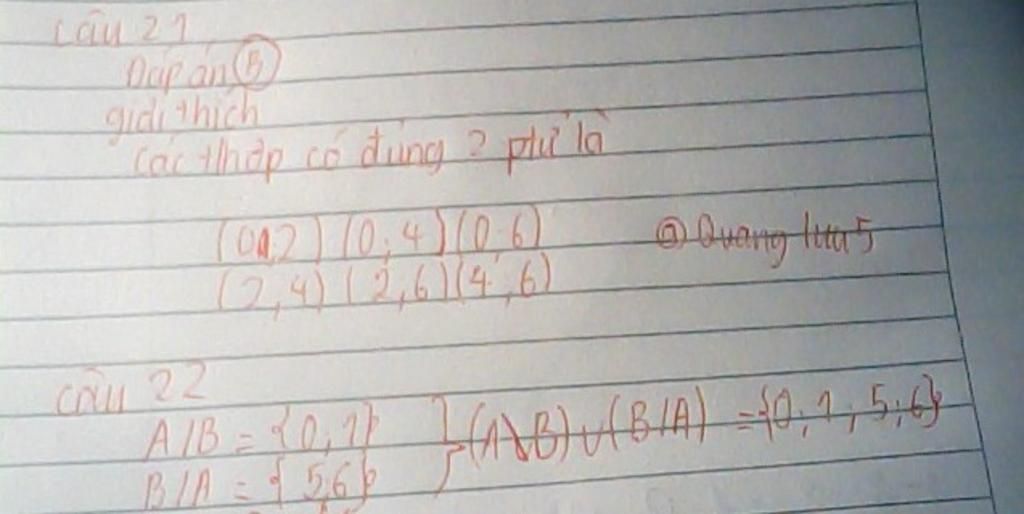 Câu 21
Đáp án B
giải thích
các t/hợp có đúng 2 ptử là
(0,2) (0,4) (0,6)
@Quang lưu5
(2,4) (2,6) (4,6)
Câu 22
A/B = {0,1}
B/A = {5,6}
} (A\B) ∪ (B/A) = {0,1,5,6}